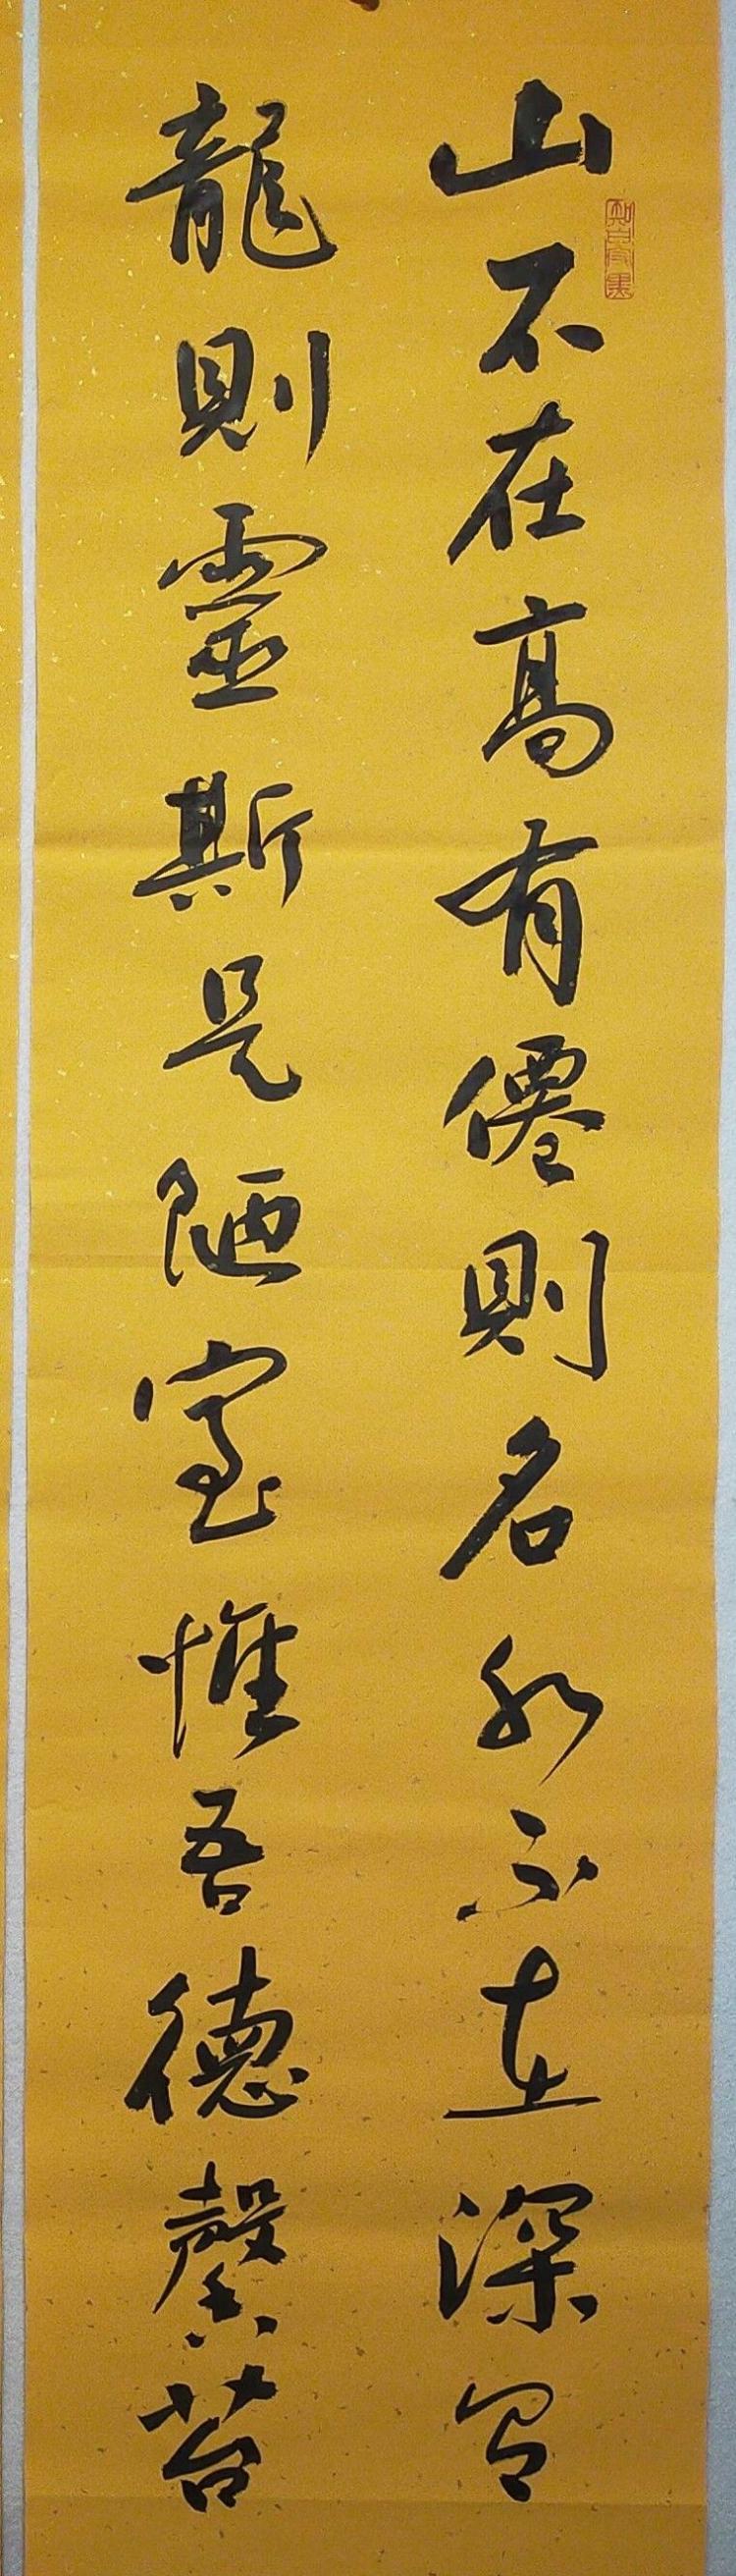 山不在高有僊則名水不在深有
龍則靈斯是陋室惟吾德馨苔
知白守黑